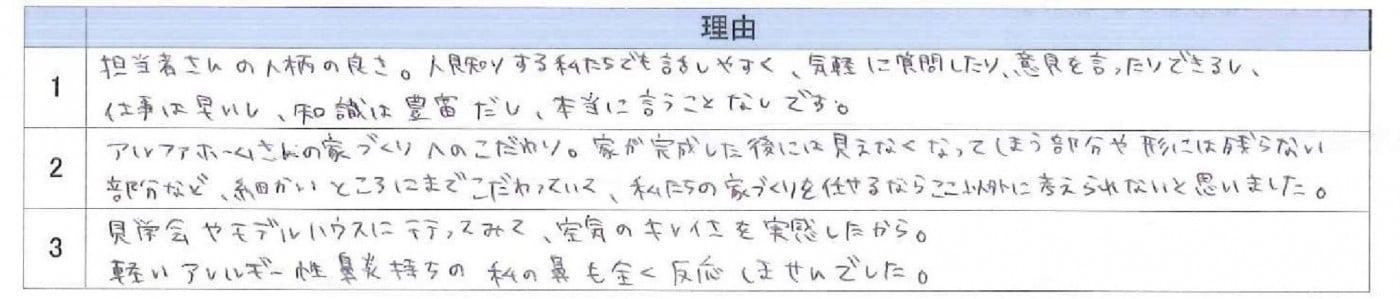 理由
1
担当者さんの人柄の良さ。人見知りする私たちでも話しやすく、気軽に質問したり、意見を言ったりできるし、
仕事は早いし、知識は豊富だし、本当に言うことなしです。
2
アルファホームさんの家づくりへのこだわり。家が完成した後には見えなくなってしまう部分や形には残らない
部分など、細かいところにまでこだわっていて、私たちの家づくりを任せるならここ以外に考えられないと思いました。
3
見学会やモデルハウスに行ってみて、空気のキレイさを実感したから。
軽いアレルギー性鼻炎持ちの私の鼻も全く反応しませんでした。